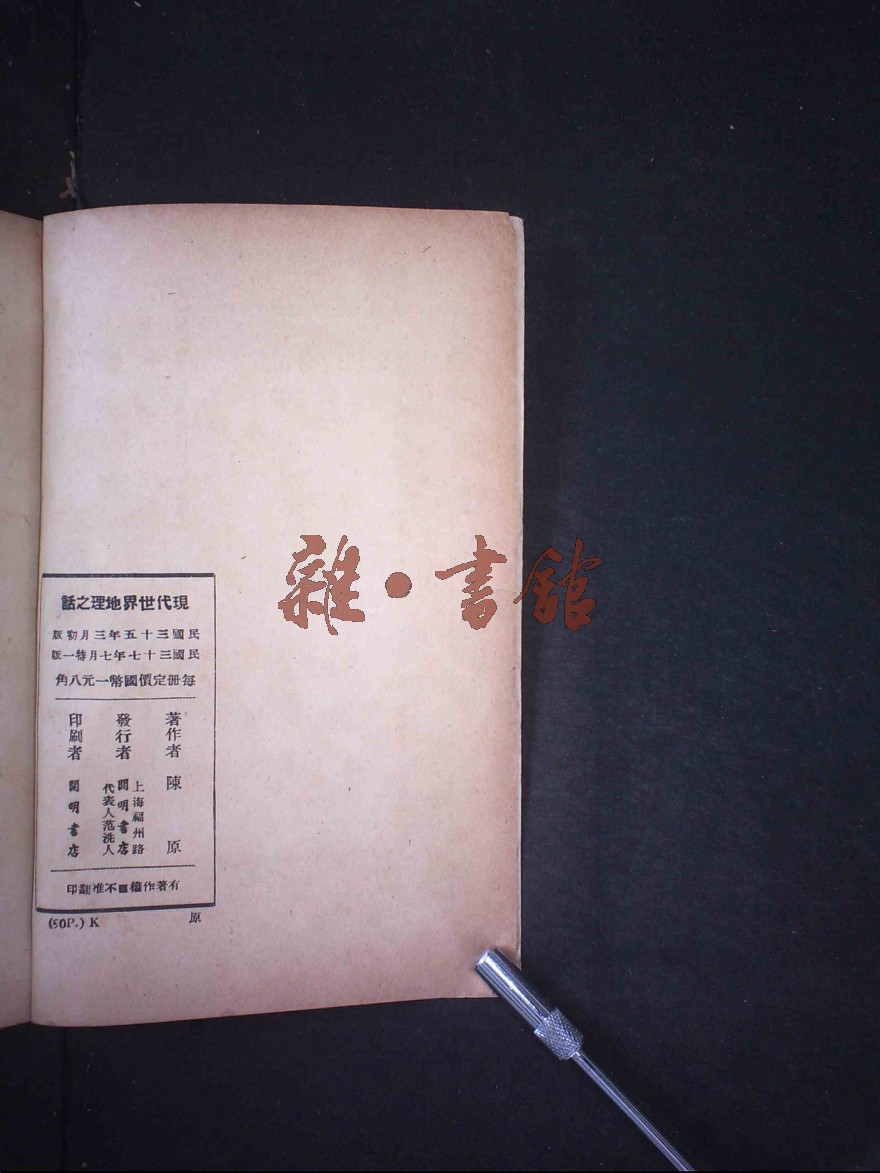 現代世界地理之話
民國三十五年三月初版
民國三十七年七月特一版
每冊定價國幣一元八角
著作者 陳原
發行者 上海福州路 開明書店 代表人范洗人
印刷者 開明書店
有著作權■不准翻印
(90P.) K
原
雜・書館